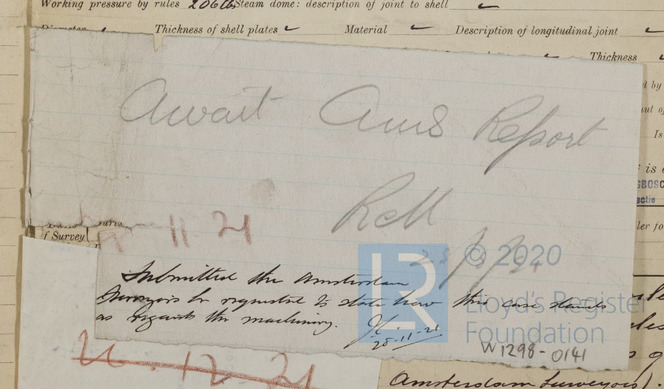 Working pressure by rules 206 lb Steam dome: description of joint to shell
Thickness of shell plates Material Description of longitudinal joint
Thickness
Await Ams Report
11 21
of Survey
© 2020
Lloyd's Register
Foundation
Submitted the Amsterdam
Surveyors be requested to state how this case stands
as regards the machinery.
25-11-21
W1298-0141
12 21
Amsterdam Surveyors